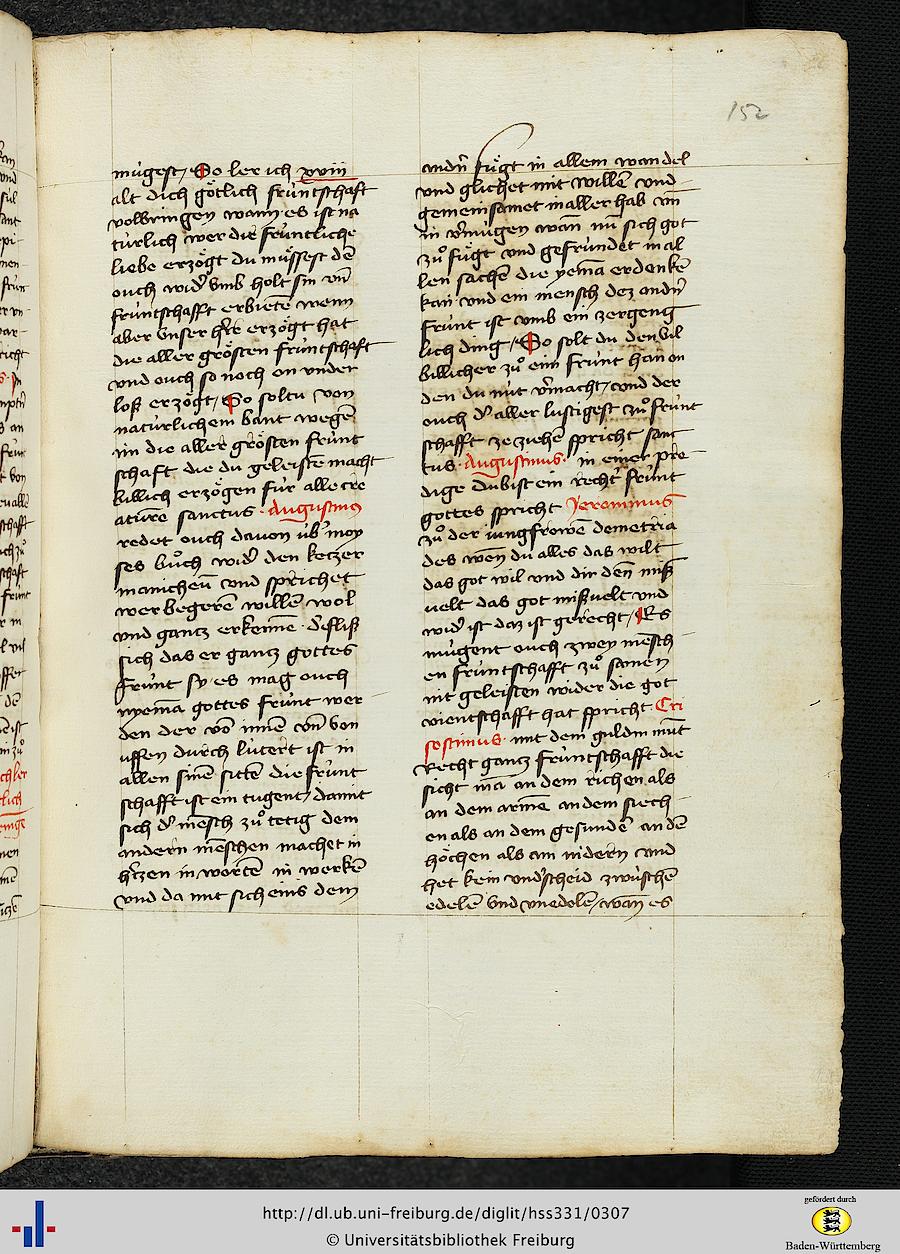 152
mùgest / So ler ich xviij
alt dich gőtlich frùntschaft
volbringen wann es ist na
tùrlich wer die frùntliche
liebe erzőgt du mùssest dē
ouch widʾ vmb holt sin vn̄
frùntschafft erbietē wenn
aber vnser hʾre erzőgt hat
die aller grősten frùntschaft
vnd ouch so noch on vnder
loß erzőgt / So soltu von
natùrlichem bant wegē
im die aller grősten frùnt
schaft die du geleistē macht
billich erzőgen fùr alle cre
aturē sanctus Augustinus
redet ouch dauon ùbʾ moy
ses bůch widʾ den ketzer
manicheū vnd sprichet
wer begerē willē wol
vnd gantz erkenne · dʾ fliß
sich das er gantz gottes
frùnt sy · es mag ouch
nyemā gottes frùnt wer
den der vō innē vn̄ von
ussen durch lutert ist in
allen sinē sittē die frùnt
schafft ist ein tugent / damit
sich dʾ mēsch zů tetig dem
andern mēschen machet in
hʾtzen in wortē in werkē
vnd da mit sich eins dem
andʾn fùgt in allem wandel
vnd glichet mit willē vnd
gemeinsamet in aller hab vn̄
in vʾmùgen wan̄ nu sich got
zů fùgt vnd gefrùndet in al
len sachē die yemā erdenkē
kan vnd ein mensch dez andʾn
frùnt ist vmb ein zergeng
lich ding / So solt du den vil
billicher zů eim frùnt han on
den du nùt vʾmacht / vnd der
ouch dʾ aller lustigest zů frùnt
schafft zeziehē spricht sanc
tus · Augustinus · in einer pre
dige du bist ein recht frùnt
gottes spricht Jeronimus
zů der iungfrowē demetria
des wen̄ du alles das wilt
das got wil vnd dir den̄ miß
uelt das got mißuelt vnd
widʾ ist daz ist gerecht / Es
mùgent ouch zwey mēsch
en frùntschafft zů samen
nit geleisten wider die got
vientschafft hat spricht Cri
sostimus · mit dem guldin mùt
Recht gantz frùntschafft die
sicht mā an dem richen als
an dem armē an dem siech
en als an dem gesundē an dē
hőchen als am nidern vnd
het kein vndʾscheid zwùschē
edelē vnd vnedelen / wan̄ es
http://dl.ub.uni-freiburg.de/diglit/hss331/0307
© Universitätsbibliothek Freiburg
gefördert durch
Baden-Württemberg